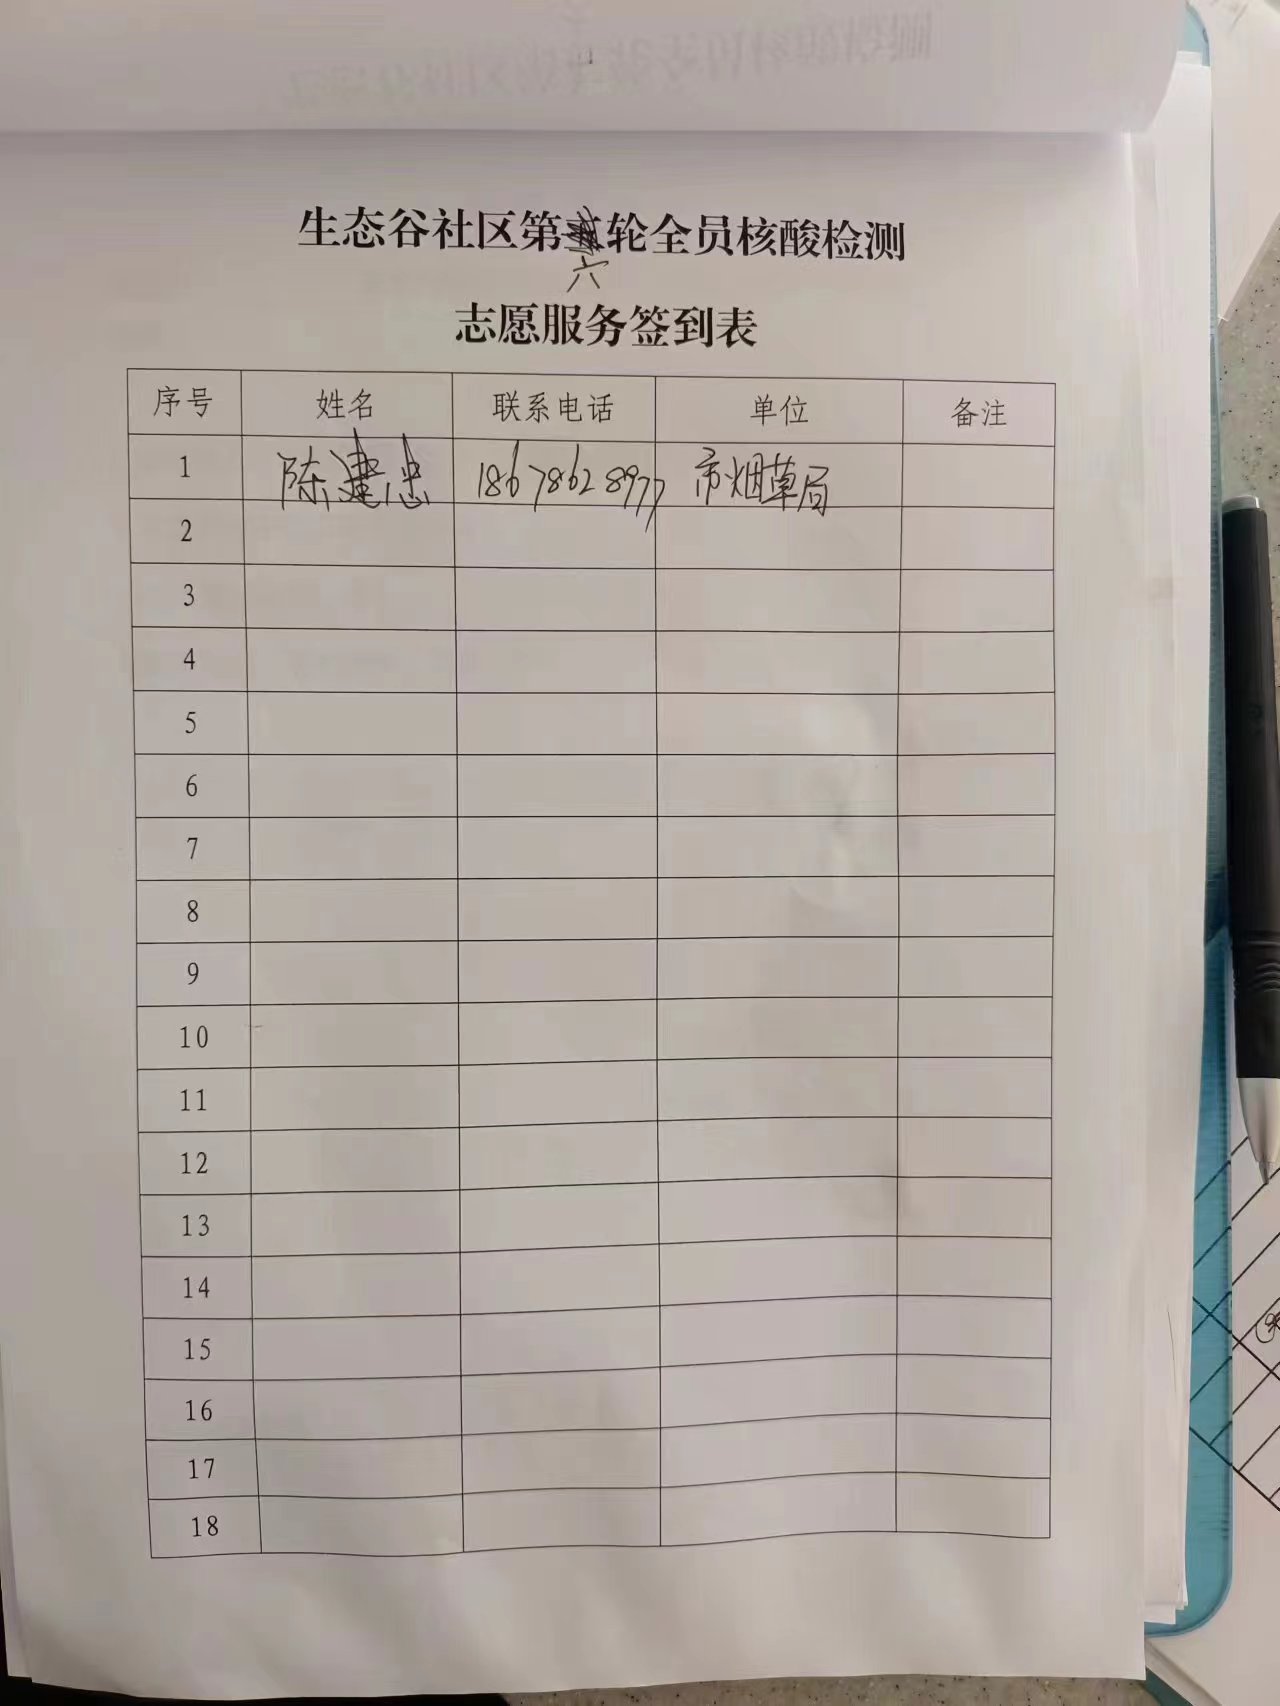 生态谷社区第六轮全员核酸检测
志愿服务签到表
序号 姓名 联系电话 单位 备注
1 陈建忠 18678628977 市烟草局
2
3
4
5
6
7
8
9
10
11
12
13
14
15
16
17
18